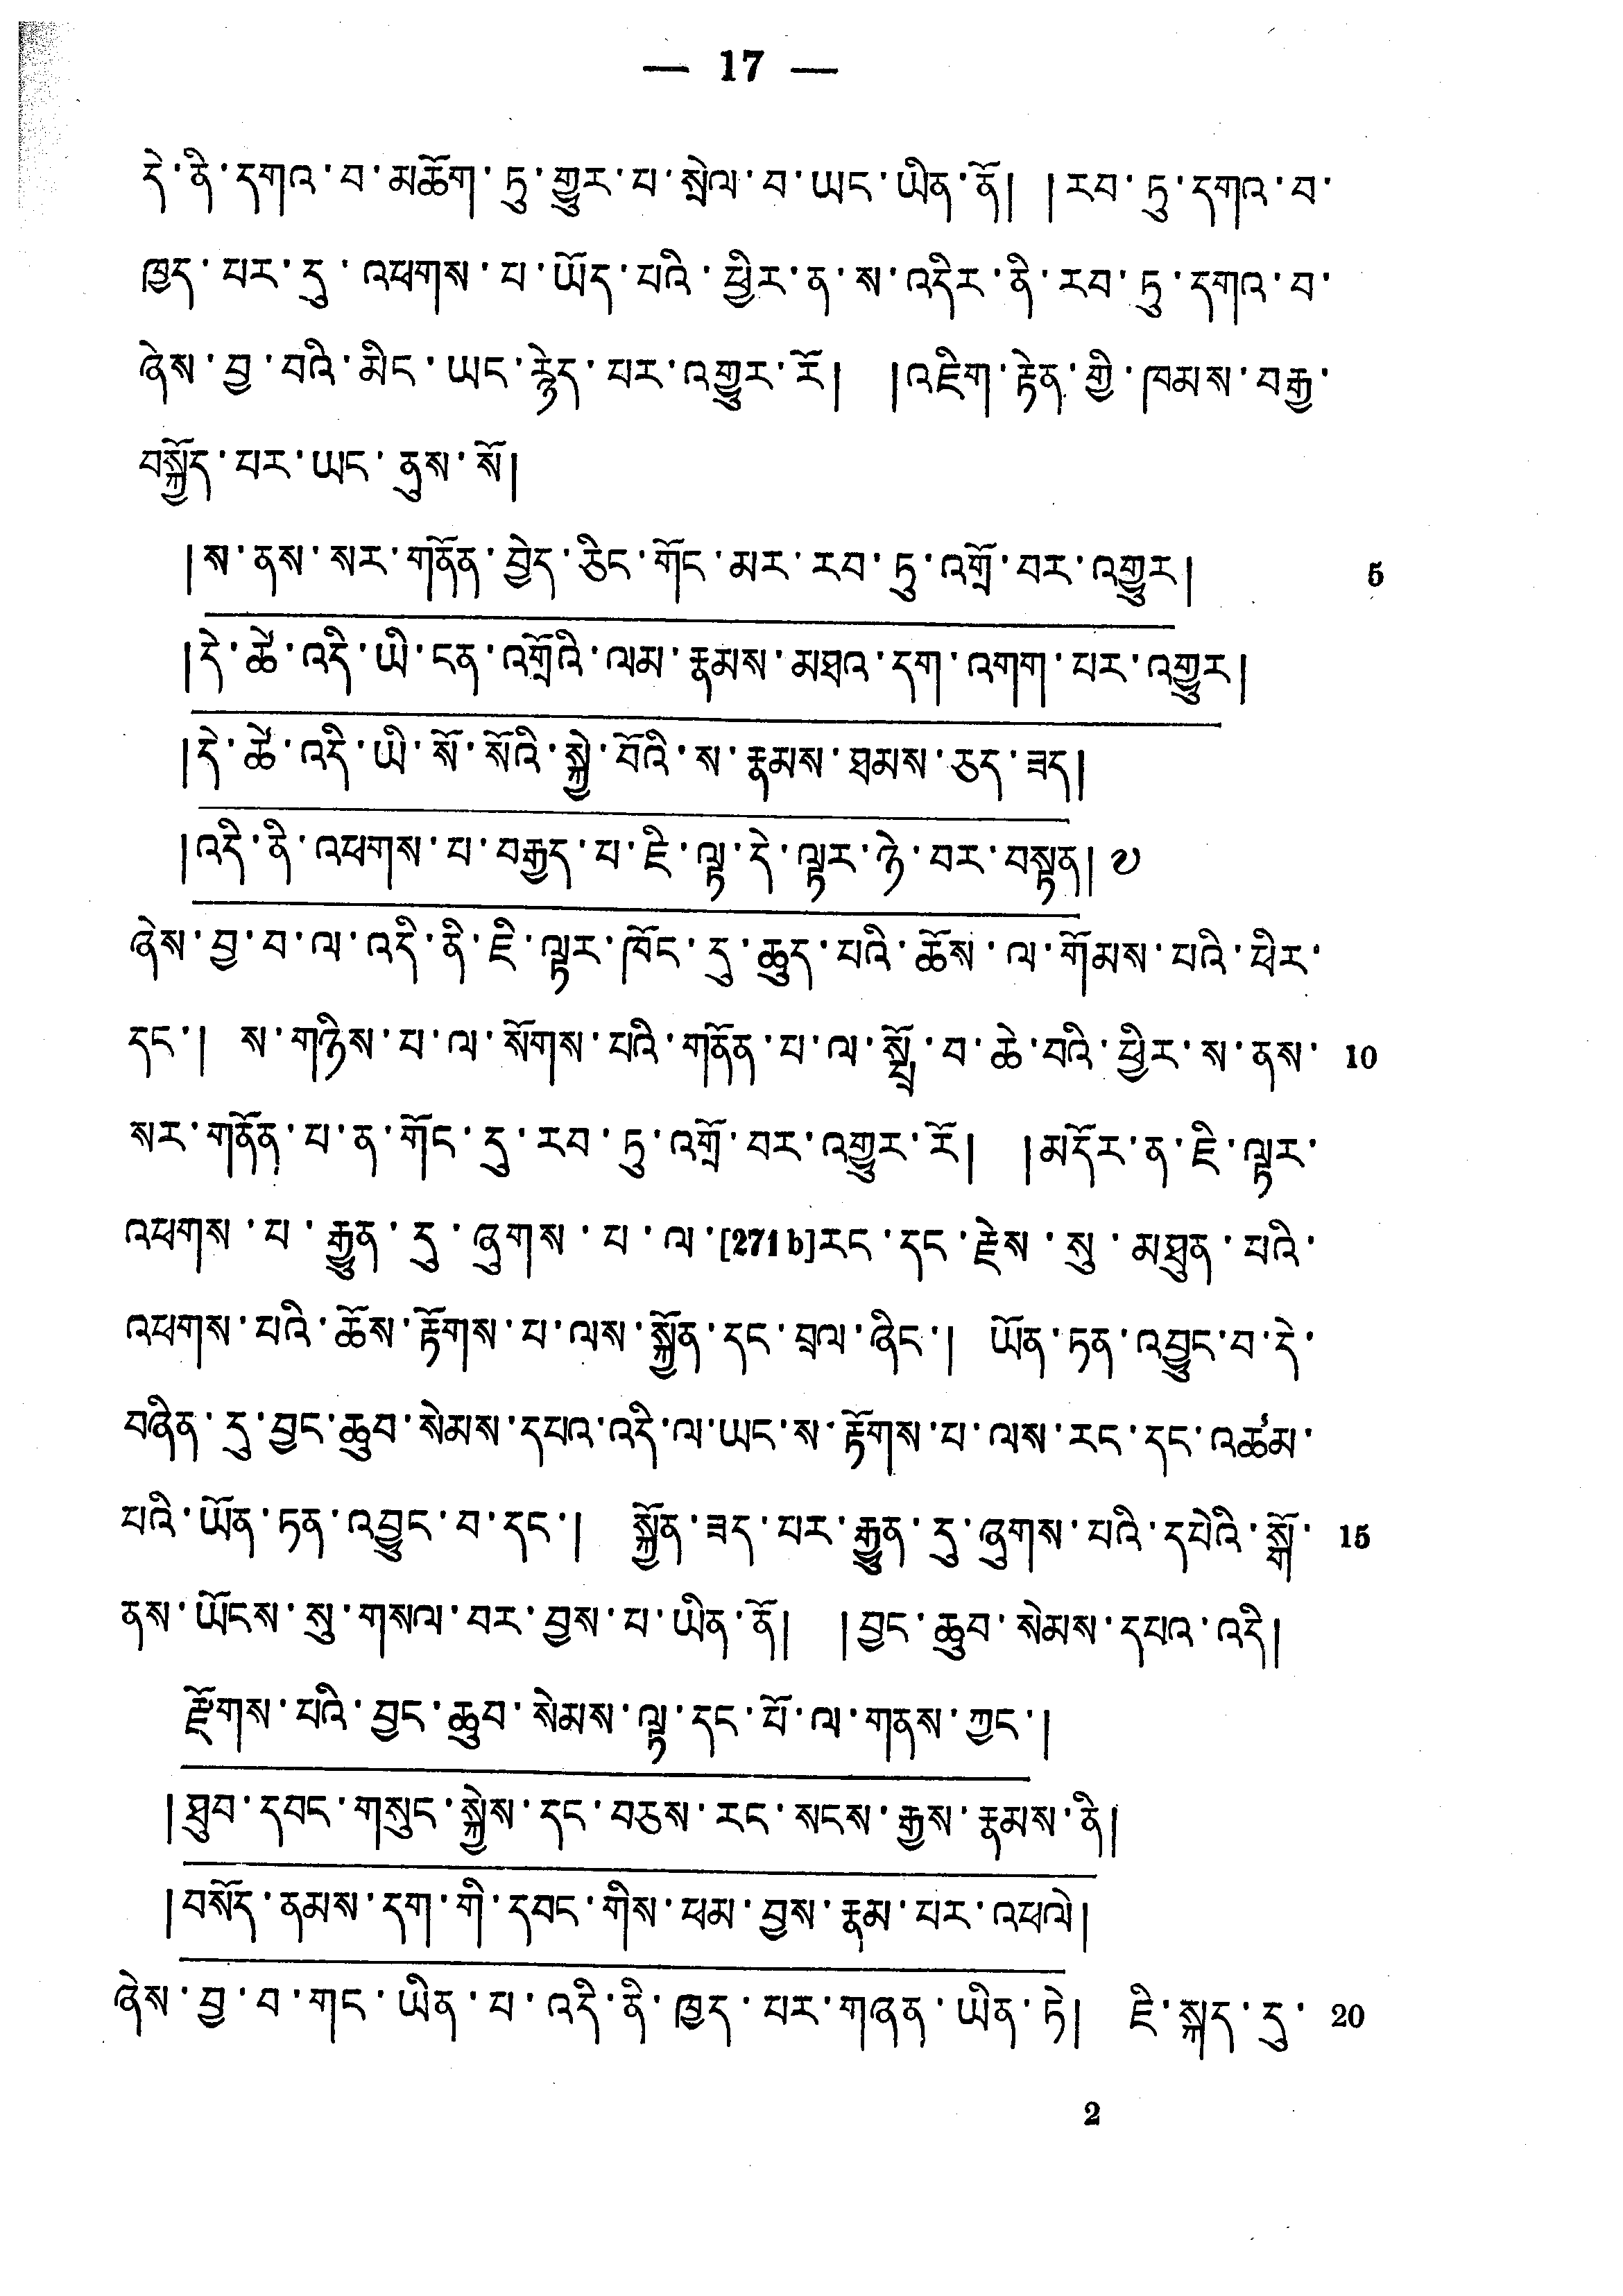 — 17 —
དེ་ནི་དགའ་བ་མཆོག་ཏུ་གྱུར་པ་སྤེལ་བ་ཡང་ཡིན་ནོ། །རབ་ཏུ་དགའ་བ་
ཁྱད་པར་དུ་འཕགས་པ་ཡོད་པའི་ཕྱིར་ན་ས་འདིར་ནི་རབ་ཏུ་དགའ་བ་
ཞེས་བྱ་བའི་མིང་ཡང་རྙེད་པར་འགྱུར་རོ། །འཇིག་རྟེན་གྱི་ཁམས་བརྒྱ་
བསྐྱོད་པར་ཡང་ནུས་སོ།
།ས་ནས་སར་གནོན་བྱེད་ཅིང་གོང་མར་རབ་ཏུ་འགྲོ་བར་འགྱུར། 5
།དེ་ཚེ་འདི་ཡི་ངན་འགྲོའི་ལམ་རྣམས་མཐའ་དག་འགག་པར་འགྱུར།
།དེ་ཚེ་འདི་ཡི་སོ་སོའི་སྐྱེ་བོའི་ས་རྣམས་ཐམས་ཅད་ཟད།
།འདི་ནི་འཕགས་པ་བརྒྱད་པ་ཇི་ལྟ་དེ་ལྟར་ཉེ་བར་བསྟན། ༧
ཞེས་བྱ་བ་ལ་འདི་ནི་ཇི་ལྟར་ཁོང་དུ་ཆུད་པའི་ཆོས་ལ་གོམས་པའི་ཕིར་
དང་། ས་གཉིས་པ་ལ་སོགས་པའི་གནོན་པ་ལ་སྤྲོ་བ་ཆེ་བའི་ཕྱིར་ས་ནས་ 10
སར་གནོན་པ་ན་གོང་དུ་རབ་ཏུ་འགྲོ་བར་འགྱུར་རོ། །མདོར་ན་ཇི་ལྟར་
འཕགས་པ་རྒྱུན་དུ་ཞུགས་པ་ལ་[271b]རང་དང་རྗེས་སུ་མཐུན་པའི་
འཕགས་པའི་ཆོས་རྟོགས་པ་ལས་སྐྱོན་དང་བྲལ་ཞིང་། ཡོན་ཏན་འབྱུང་བ་དེ་
བཞིན་དུ་བྱང་ཆུབ་སེམས་དཔའ་འདི་ལ་ཡང་ས་རྟོགས་པ་ལས་རང་དང་འཚམ་
པའི་ཡོན་ཏན་འབྱུང་བ་དང་། སྐྱོན་ཟད་པར་རྒྱུན་དུ་ཞུགས་པའི་དཔེའི་སྒོ་ 15
ནས་ཡོངས་སུ་གསལ་བར་བྱས་པ་ཡིན་ནོ། །བྱང་ཆུབ་སེམས་དཔའ་འདི།
རྫོགས་པའི་བྱང་ཆུབ་སེམས་ལྟ་དང་པོ་ལ་གནས་ཀྱང་།
།ཐུབ་དབང་གསུང་སྐྱེས་དང་བཅས་རང་སངས་རྒྱས་རྣམས་ནི།
།བསོད་ནམས་དག་གི་དབང་གིས་ཕམ་བྱས་རྣམ་པར་འཕལེ།
ཞེས་བྱ་བ་གང་ཡིན་པ་འདི་ནི་ཁྱད་པར་གཞན་ཡིན་ཏེ། ཇི་སྐད་དུ་ 20
2